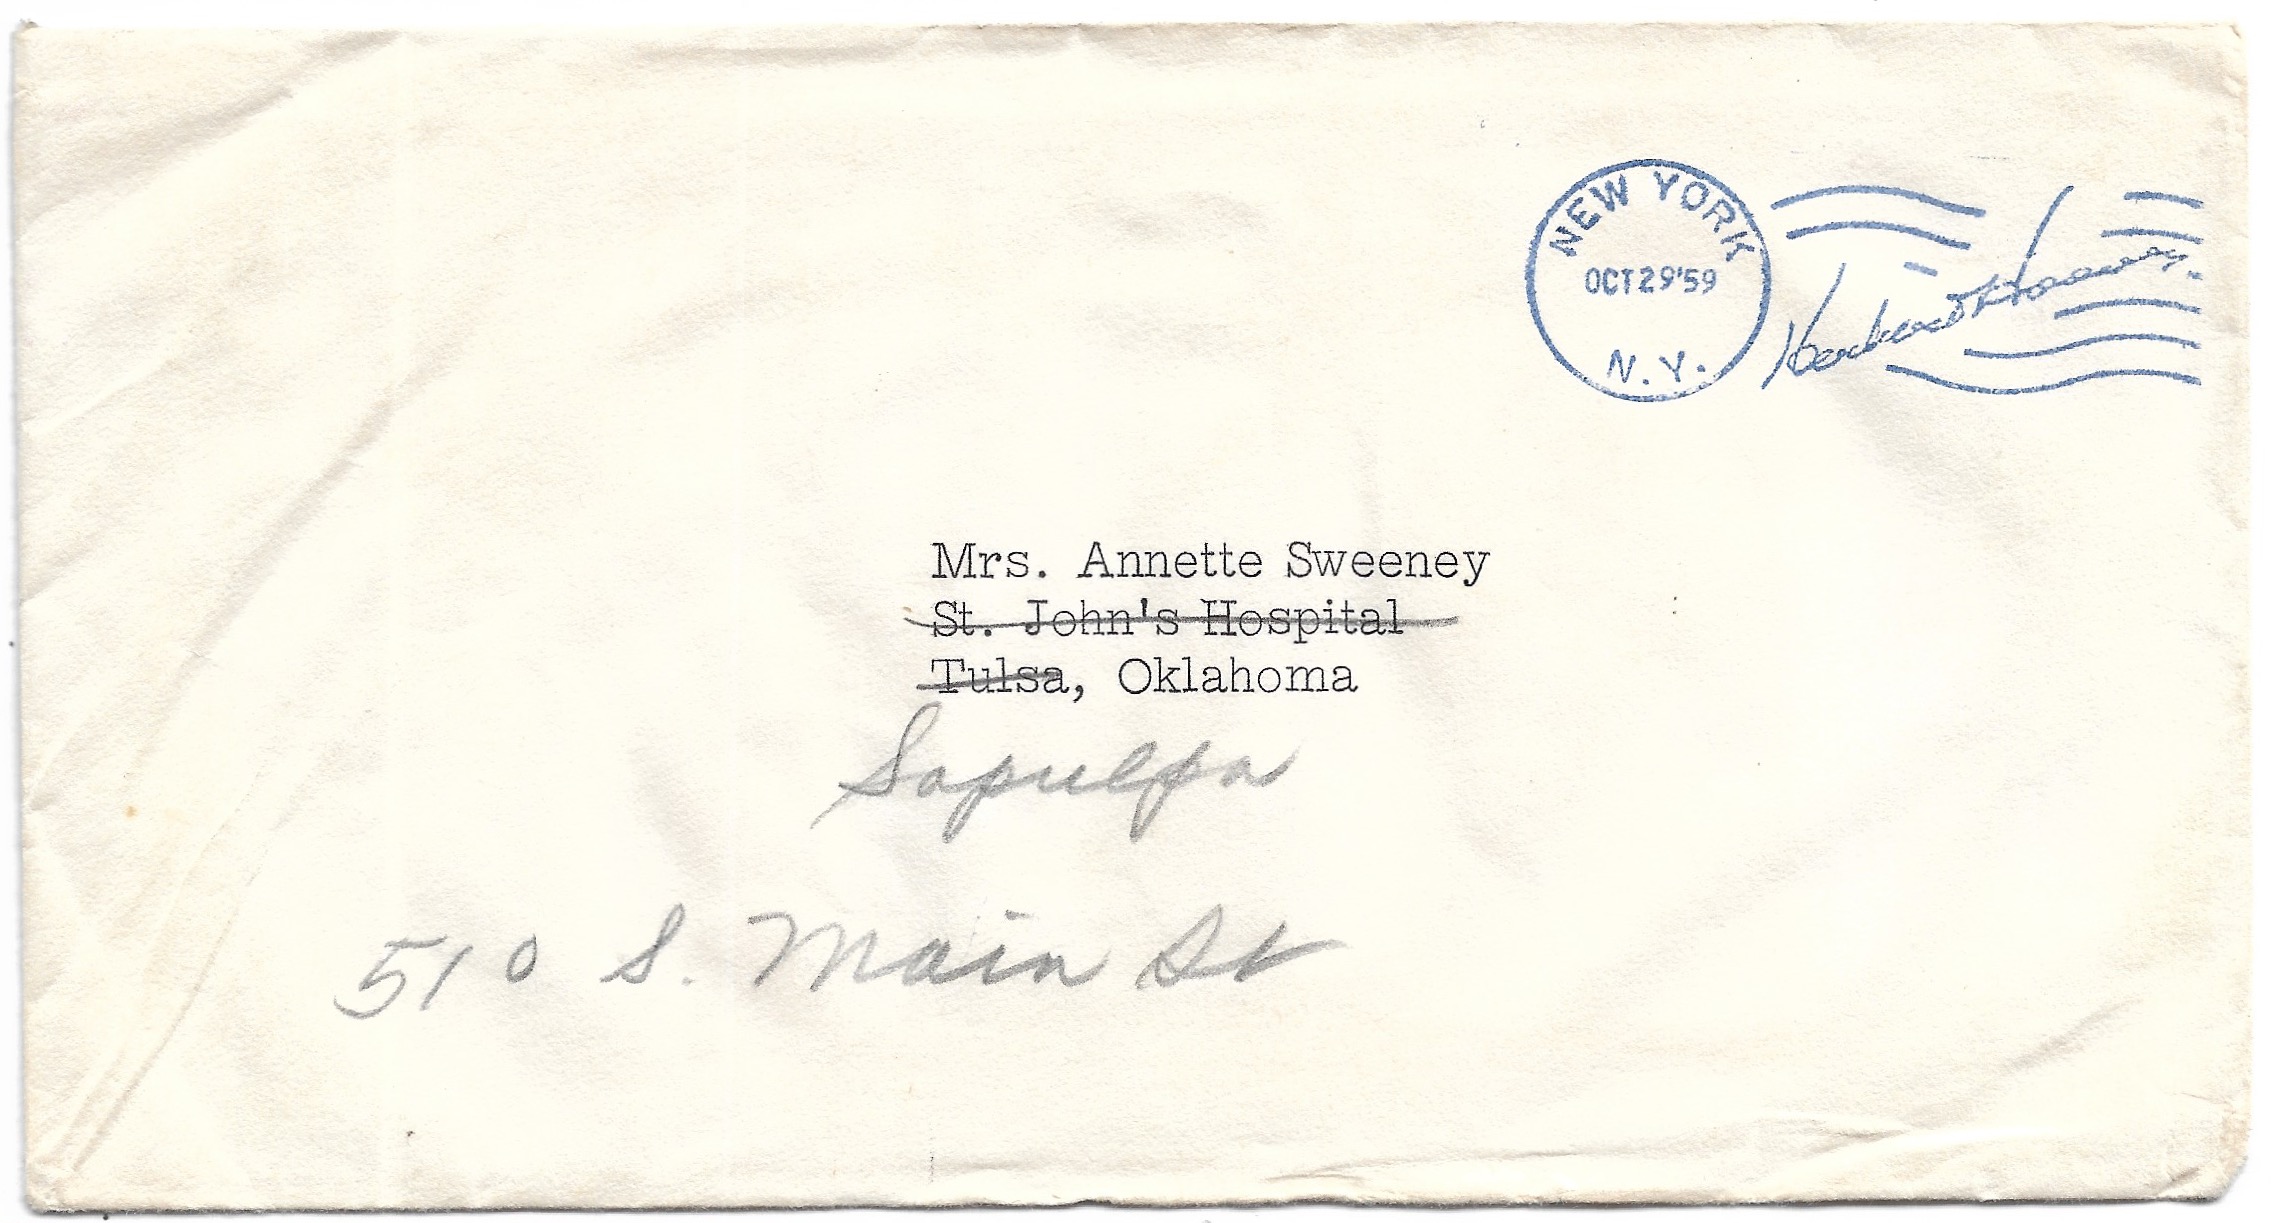 NEW YORK
OCT 29 '59
N. Y.
Herbert Hoover
Mrs. Annette Sweeney
St. John's Hospital
Tulsa, Oklahoma
Sapulpa
510 S. Main St